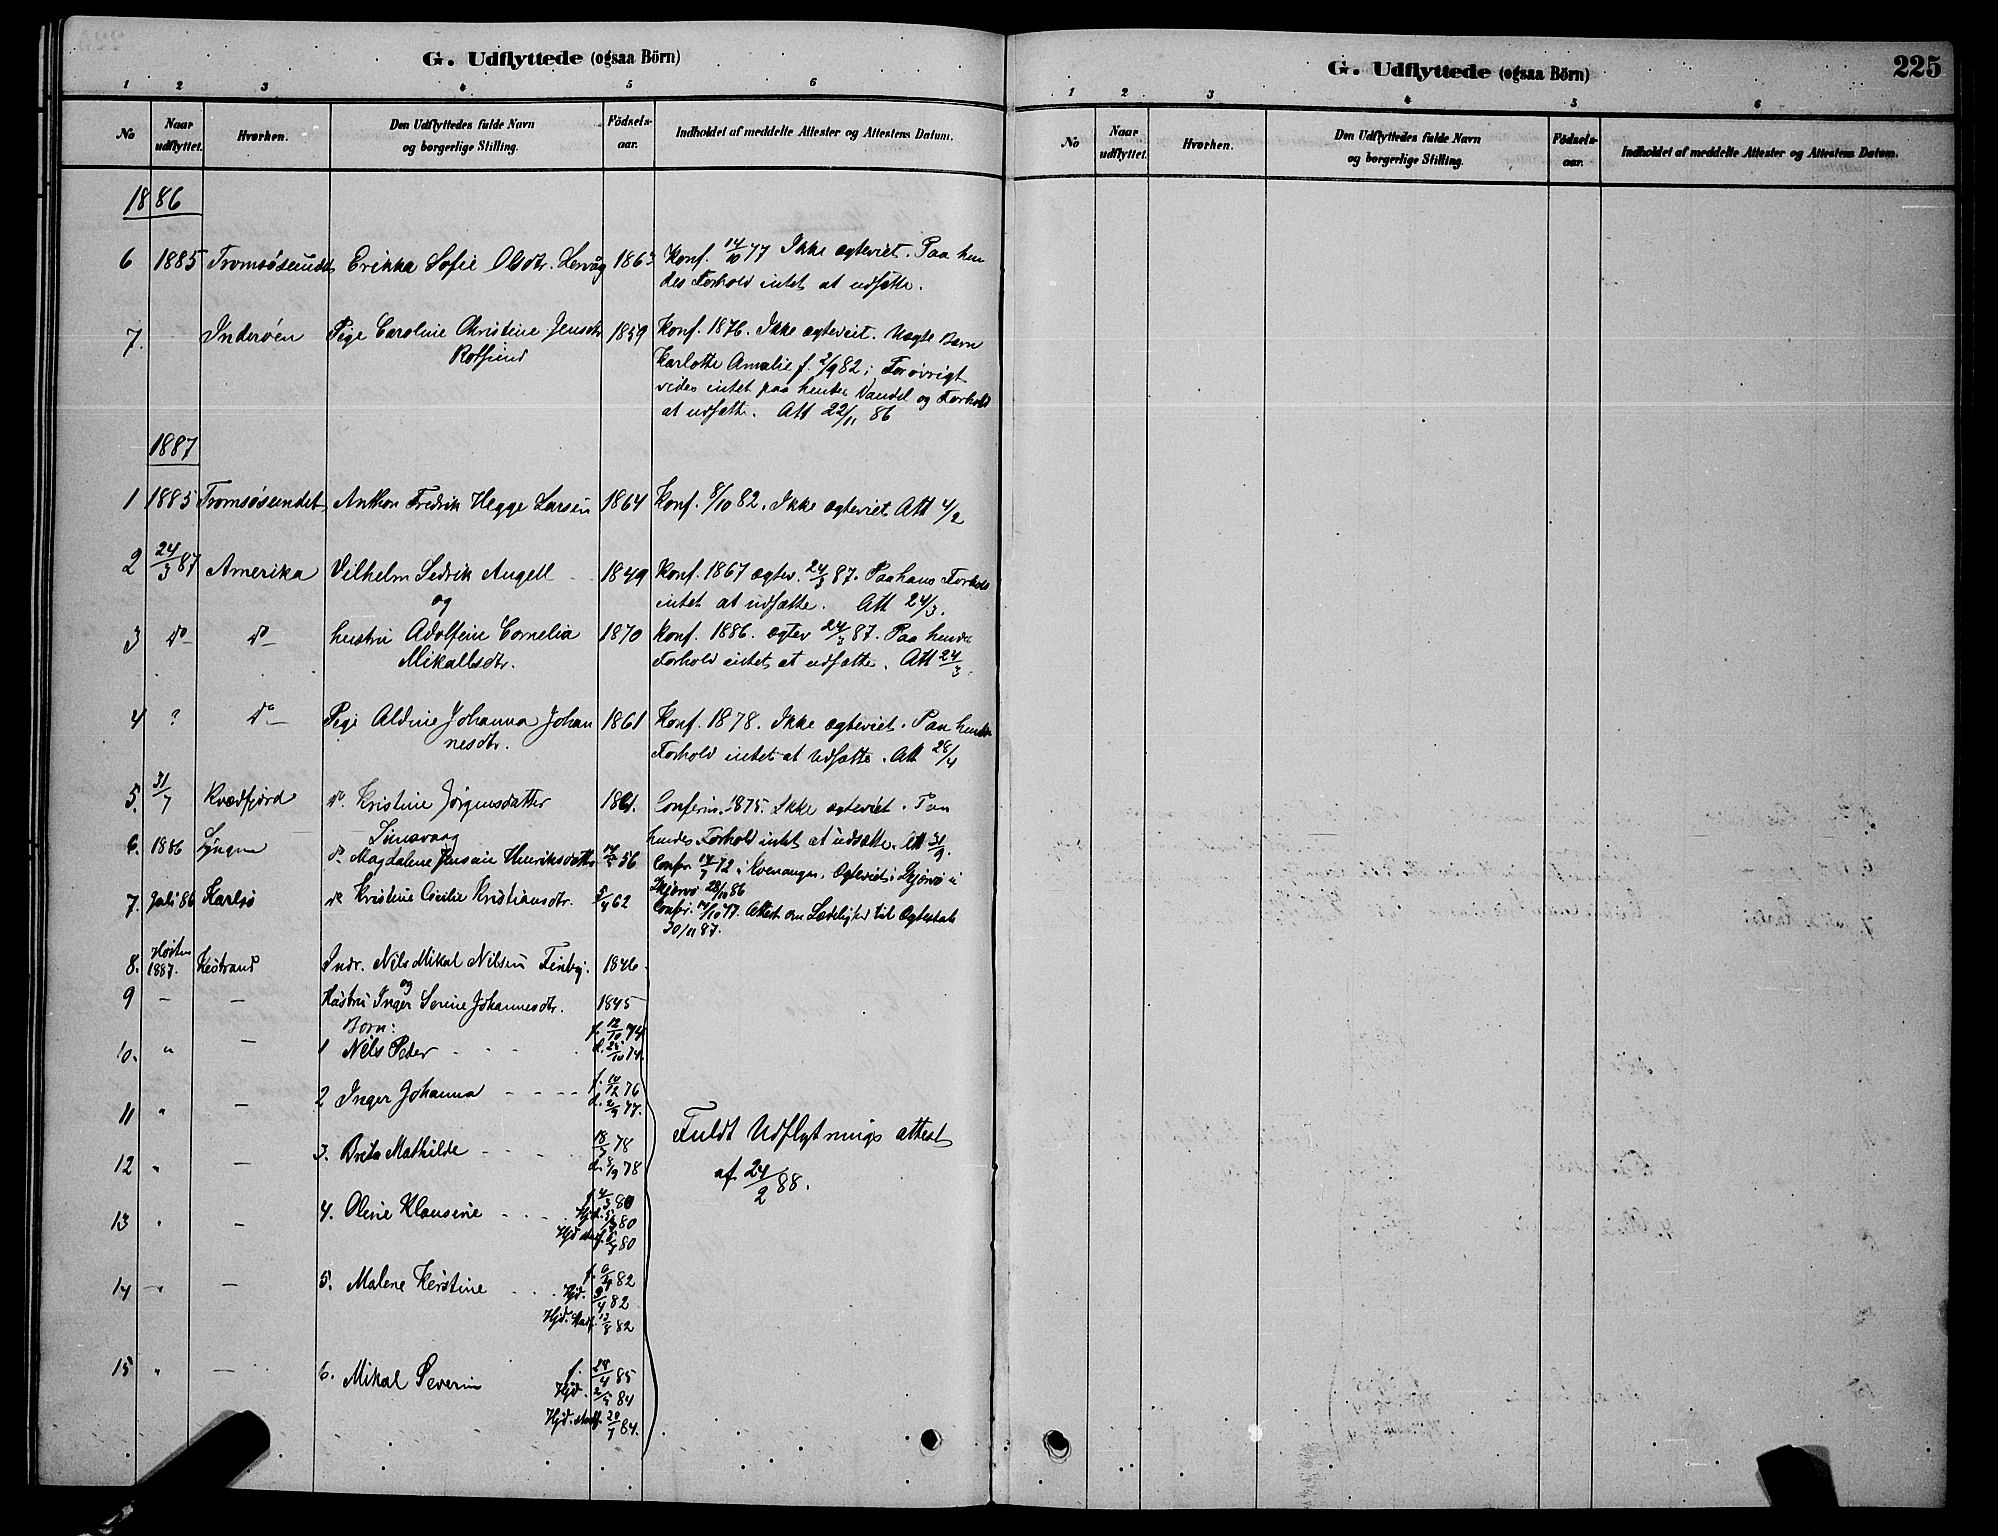 G. Udflyttede (ogsaa Börn)
1 2 3 4 5 6
No Naar udflyttet. Hvorhen. Den Udflyttedes fulde Navn og borgerlige Stilling. Födsels-aar. Indholdet af meddelte Attester og Attestens Datum.
1886
6 1885 Tromsøsundet Erikka Sofie Olsdtr. 1863 Konf. 14/10 77 Ikke egteviet. Paa hen
des Forhold intet at udsætte.
7. Inderøen Pige Caroline Christine Jensdtr 1859 Konf. 1876. Ikke egteviet. Uægte Barn
Karlotte Amalie f. 2/9 82; Forøvrigt
vides intet paa hendes Vandel og Forhold
at udsætte. Att 22/11 86
1887
1 1885 Tromsøsundet Anthon Fredrik Hegge Larsen 1864 Konf. 8/10 82. Ikke egteviet Att 4/2
2 24/3 87 Amerika Vilhelm Sedrik Angell 1849 Konf. 1867 egtev. 24/3 87. Paa hans Forhold
og
intet at udsætte. Att 24/3.
3 do do hustru Adolfine Cornelia 1870 Konf. 1886. egtev 24/3 87. Paa hendes
Mikalsdtr. Forhold intet at udsætte. Att 24/3.
4 ? do Pige Aldine Johanna Johan 1861 Konf. 1878. Ikke egteviet. Paa hendes
nesdtr. Forhold intet at udsætte. Att 28/4
5. 31/7 Kvædfjord do. Kristine Jørgensdatter 1861. Conferm. 1875. Ikke egteviet. Paa
hendes Forhold intet at udsætte. Att 31/9.
6. 1886 Lyngen do Magdalene Jensine Henriksdatter 56 Confr. 14/7 72 i Kvenangen. Egteviet i Skjervø
Skjervø 28/10 86
7. Juli 86 Karlsø do Kristine Cecilie Kristiansdtr. 5/4 62 Confr. 14/10 77. Attest om Lædighed til Egteskab
30/11 87.
8. Høsten 1887. Kistrand Indr. Nils Mikal Nilsen 1846.
og
9 – – Hustru Inger Serine Johannesdtr. 1845
Børn:
10. " – 1 Nils Peder f. 12/10 74 d. 25/10 74.
11 " – 2 Inger Johanna f. 10/12 76 d. 2/9 77.
Fuldt Udflytnings attest
12 " – 3. Berta Mathilde 18/7 78 d. 8/9 78
af 24/2 88.
13 " – 4. Oline Klausine f. 4/3 80 Hjd. 5/3 80 Hjd. stadf. 80
14 " – 5. Malene Kerstine f. 82 Hjd. 9/4 82 Hjd. stadf. 13/8 82
15 " – 6. Mikal Severin f. 28/4 85 Hjd. 84 Hjd. stadf. 20/7 84.
G. Udflyttede (ogsaa Börn) 225
1 2 3 4 5 6
No Naar udflyttet. Hvorhen. Den Udflyttedes fulde Navn og borgerlige Stilling. Födsels-aar. Indholdet af meddelte Attester og Attestens Datum.